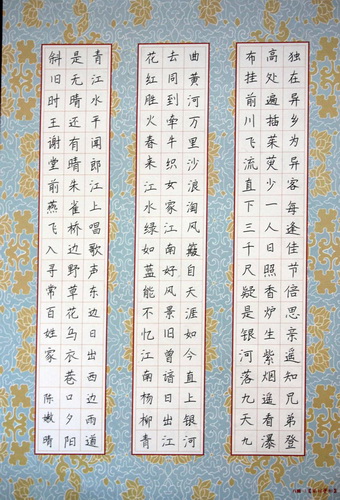 独在异乡为异客每逢佳节倍思亲遥知兄弟登
高处遍插茱萸少一人日照香炉生紫烟遥看瀑
布挂前川飞流直下三千尺疑是银河落九天九
曲黄河万里沙浪淘风簸自天涯如今直上银河
去同到牵牛织女家江南好风景旧曾谙日出江
花红胜火春来江水绿如蓝能不忆江南杨柳青
青江水平闻郎江上唱歌声东边日出西边雨道
是无晴还有晴朱雀桥边野草花乌衣巷口夕阳
斜旧时王谢堂前燕飞入寻常百姓家
陈嫩晴